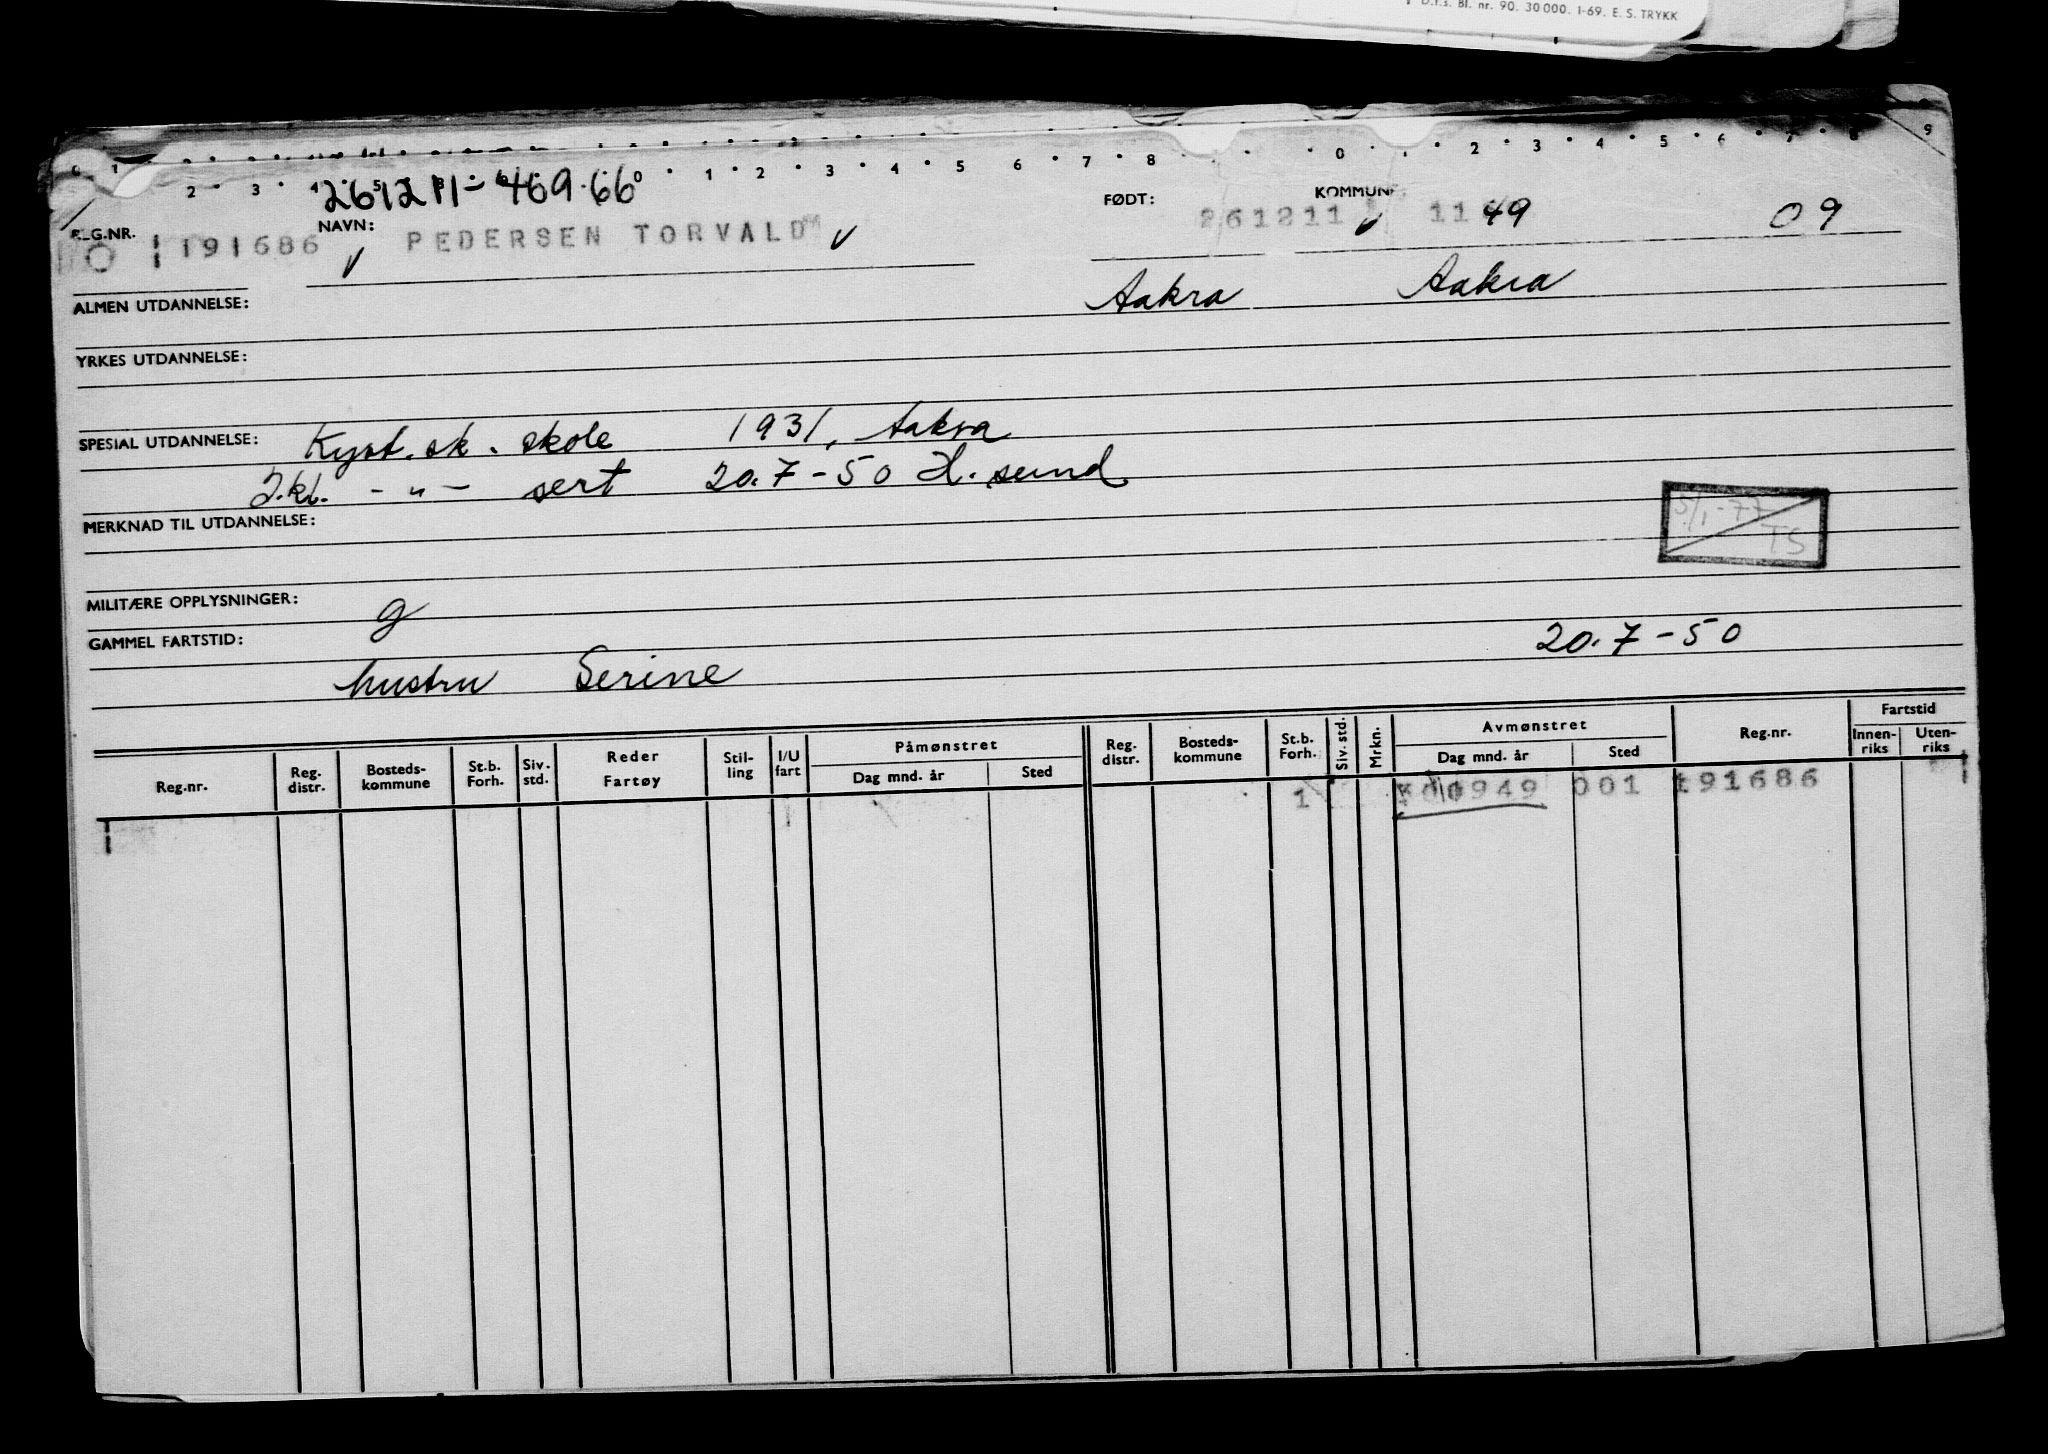 D.f.s. Bl. nr. 90. 30000. 1-69. E. S. TRYKK
261211-469.66
REG.NR. NAVN: FØDT: KOMMUNE
191686 PEDERSEN TORVALD 261211 1149 09
ALMEN UTDANNELSE: Aakra Aakra
YRKES UTDANNELSE:
SPESIAL UTDANNELSE: Kyst.sk.skole 1931, Aakra
2.kl. - " - sert 20.7-50 H.sund
MERKNAD TIL UTDANNELSE:
5/1-77
TS
MILITÆRE OPPLYSNINGER: g
GAMMEL FARTSTID: 20.7-50
hustru Serine
Reg.nr. Reg. distr. Bosteds-kommune St.b. Forh. Siv. std. Reder Fartøy Stil-ling I/U fart Påmønstret Dag mnd. år Sted Reg. distr. Bosteds-kommune St.b. Forh. Siv. std. Mrkn. Avmønstret Dag mnd. år Sted Reg.nr. Fartstid Innen-riks Uten-riks
1 949 001 191686